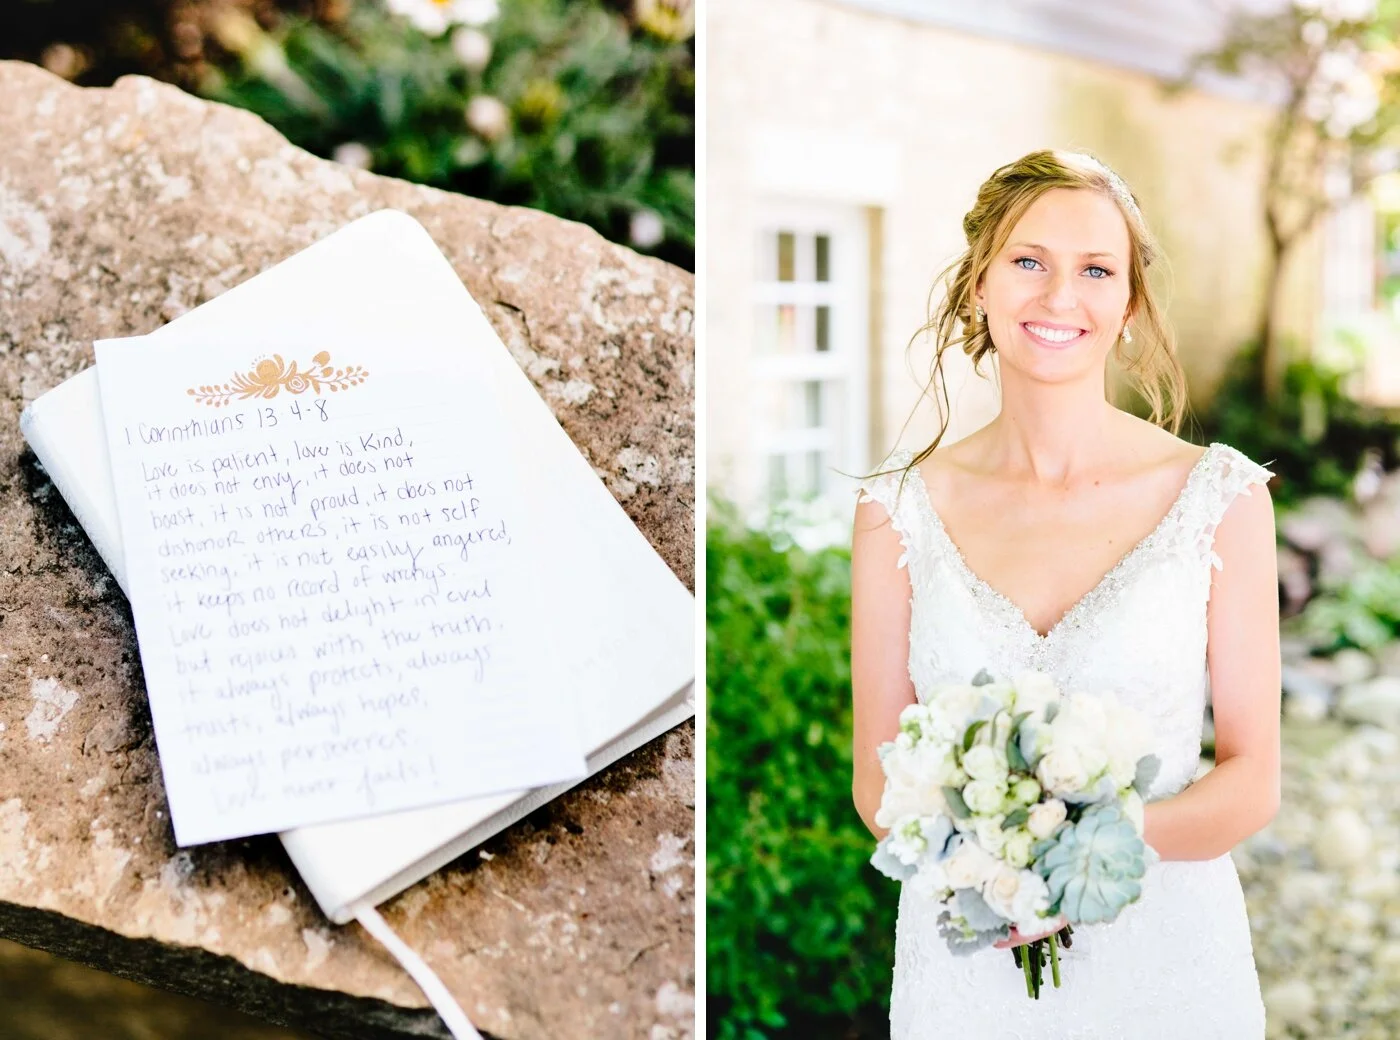 1 Corinthians 13 4-8
Love is patient, love is kind,
it does not envy, it does not
boast, it is not proud, it does not
dishonor others, it is not self
seeking, it is not easily angered,
it keeps no record of wrongs.
Love does not delight in evil
but rejoices with the truth.
it always protects, always
trusts, always hopes,
always perseveres.
Love never fails!